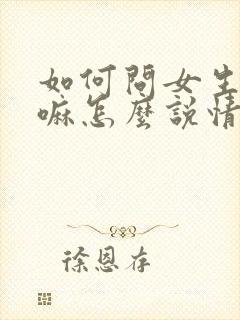 如何問女生
嘛怎麼說情
徐恩存